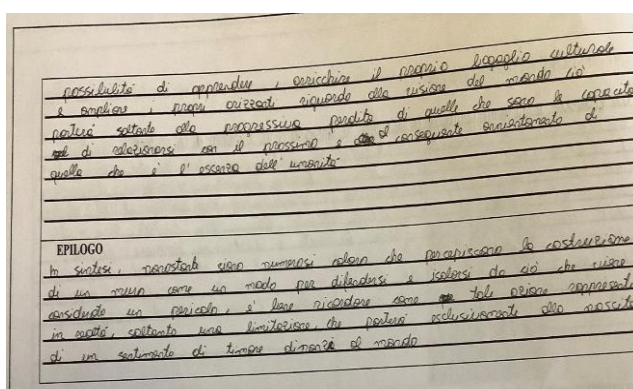 possibilità di apprendere, arricchire il proprio bagaglio culturale
e ampliare i propri orizzonti riguardo alla visione del mondo ciò
porterà soltanto alla progressiva perdita di quelle che sono le capacità
di relazionarsi con il prossimo e al conseguente annientamento di
quella che è l'essenza dell'umanità
EPILOGO
In sintesi, nonostante siano numerosi coloro che percepiscono la costruzione
di un muro come un modo per difendersi e isolarsi da ciò che viene
considerato un pericolo, è bene ricordare come tale azione rappresenti
in realtà, soltanto una limitazione, che porterà esclusivamente alla nascita
di un sentimento di timore dinanzi al mondo